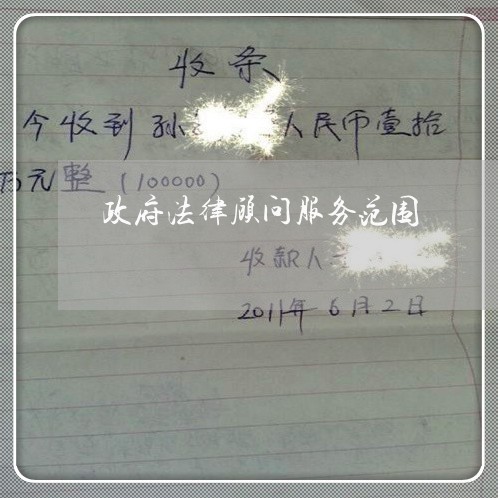 收条
今收到孙 人民币壹拾
万元整（100000）
政府法律顾问服务范围
收款人
2011年6月2日